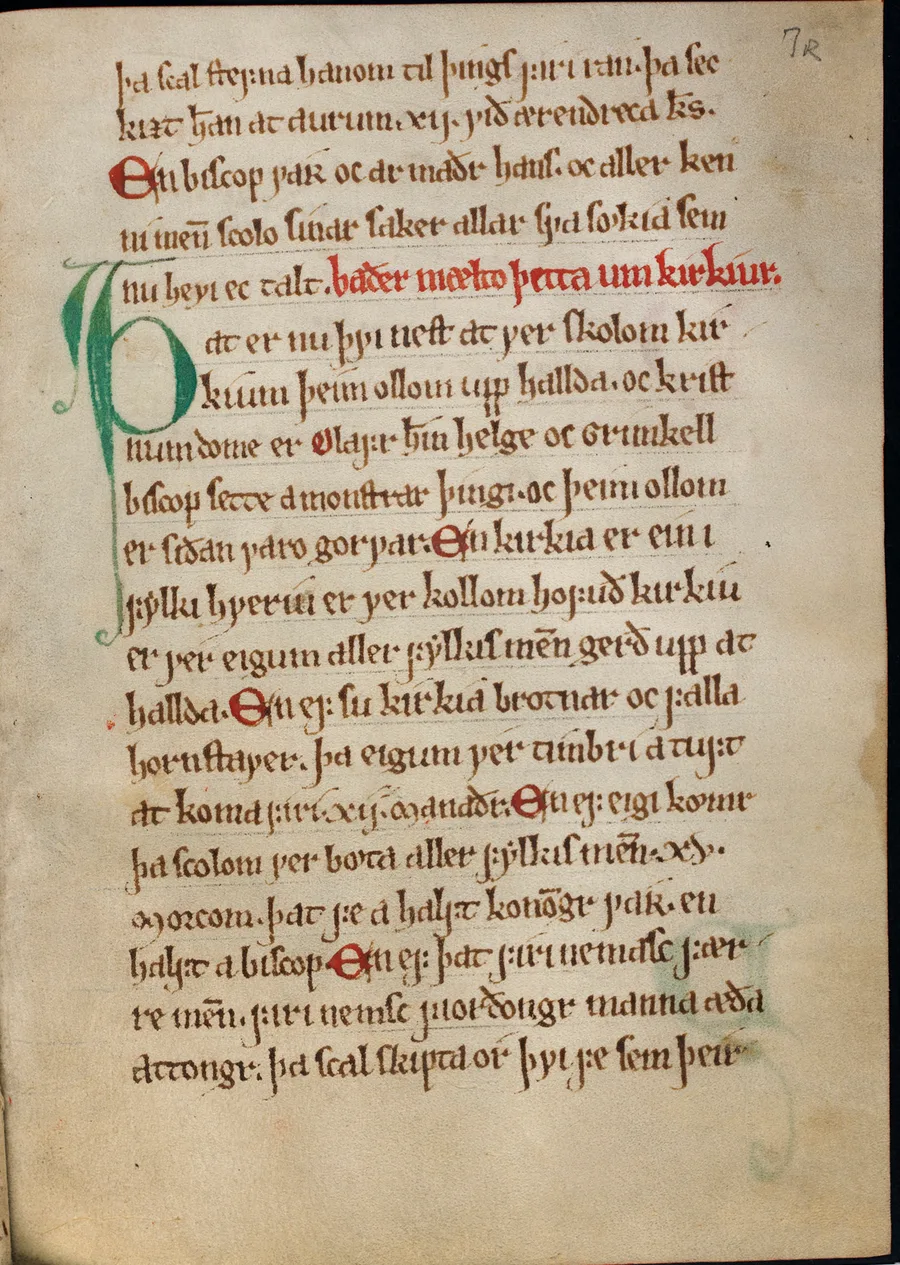 7R
þa scal stefna hanom til þings firi ran. þa sec
kizt h̅an at aurum .xij. ỽið ærendreca k̅s.
En biscop ỽaʀ oc armaðr hans. oc aller ken
ni men̅ scolo sinar saker allar sỽa sokia sem
nu heỽi ec talt. baðer mælto þetta um kirkiur.
Þat er nu þỽi nest at ỽer skolom kir
kium þeim ollom upp hallda. oc krist
num dome er Olafr h̅in helge oc Grimkell
biscop sette a monstrar þingi. oc þeim ollom
er siðan ỽaro gorỽar. En kirkia er ein i
fẏlki hỽeriu er ỽer kollom hofuð kirkiu
er ỽer eigum aller fẏlkis men̅ gerð upp at
hallda. En ef su kirkia brotnar oc falla
hornstaỽer. þa eigum ỽer timbri a tuft
at koma firi .xij. manaðr. En ef eigi komr
þa scolom ỽer bota aller fẏlkis men̅ .xv.
morcom. þat fe a halft kono̅gr ỽaʀ. en
halft a biscop. En ef þat firi nemasc fær
re men̅. firi nemsc fiorðongr manna æða
attongr. þa scal skipta or þỽi fe sem þeir